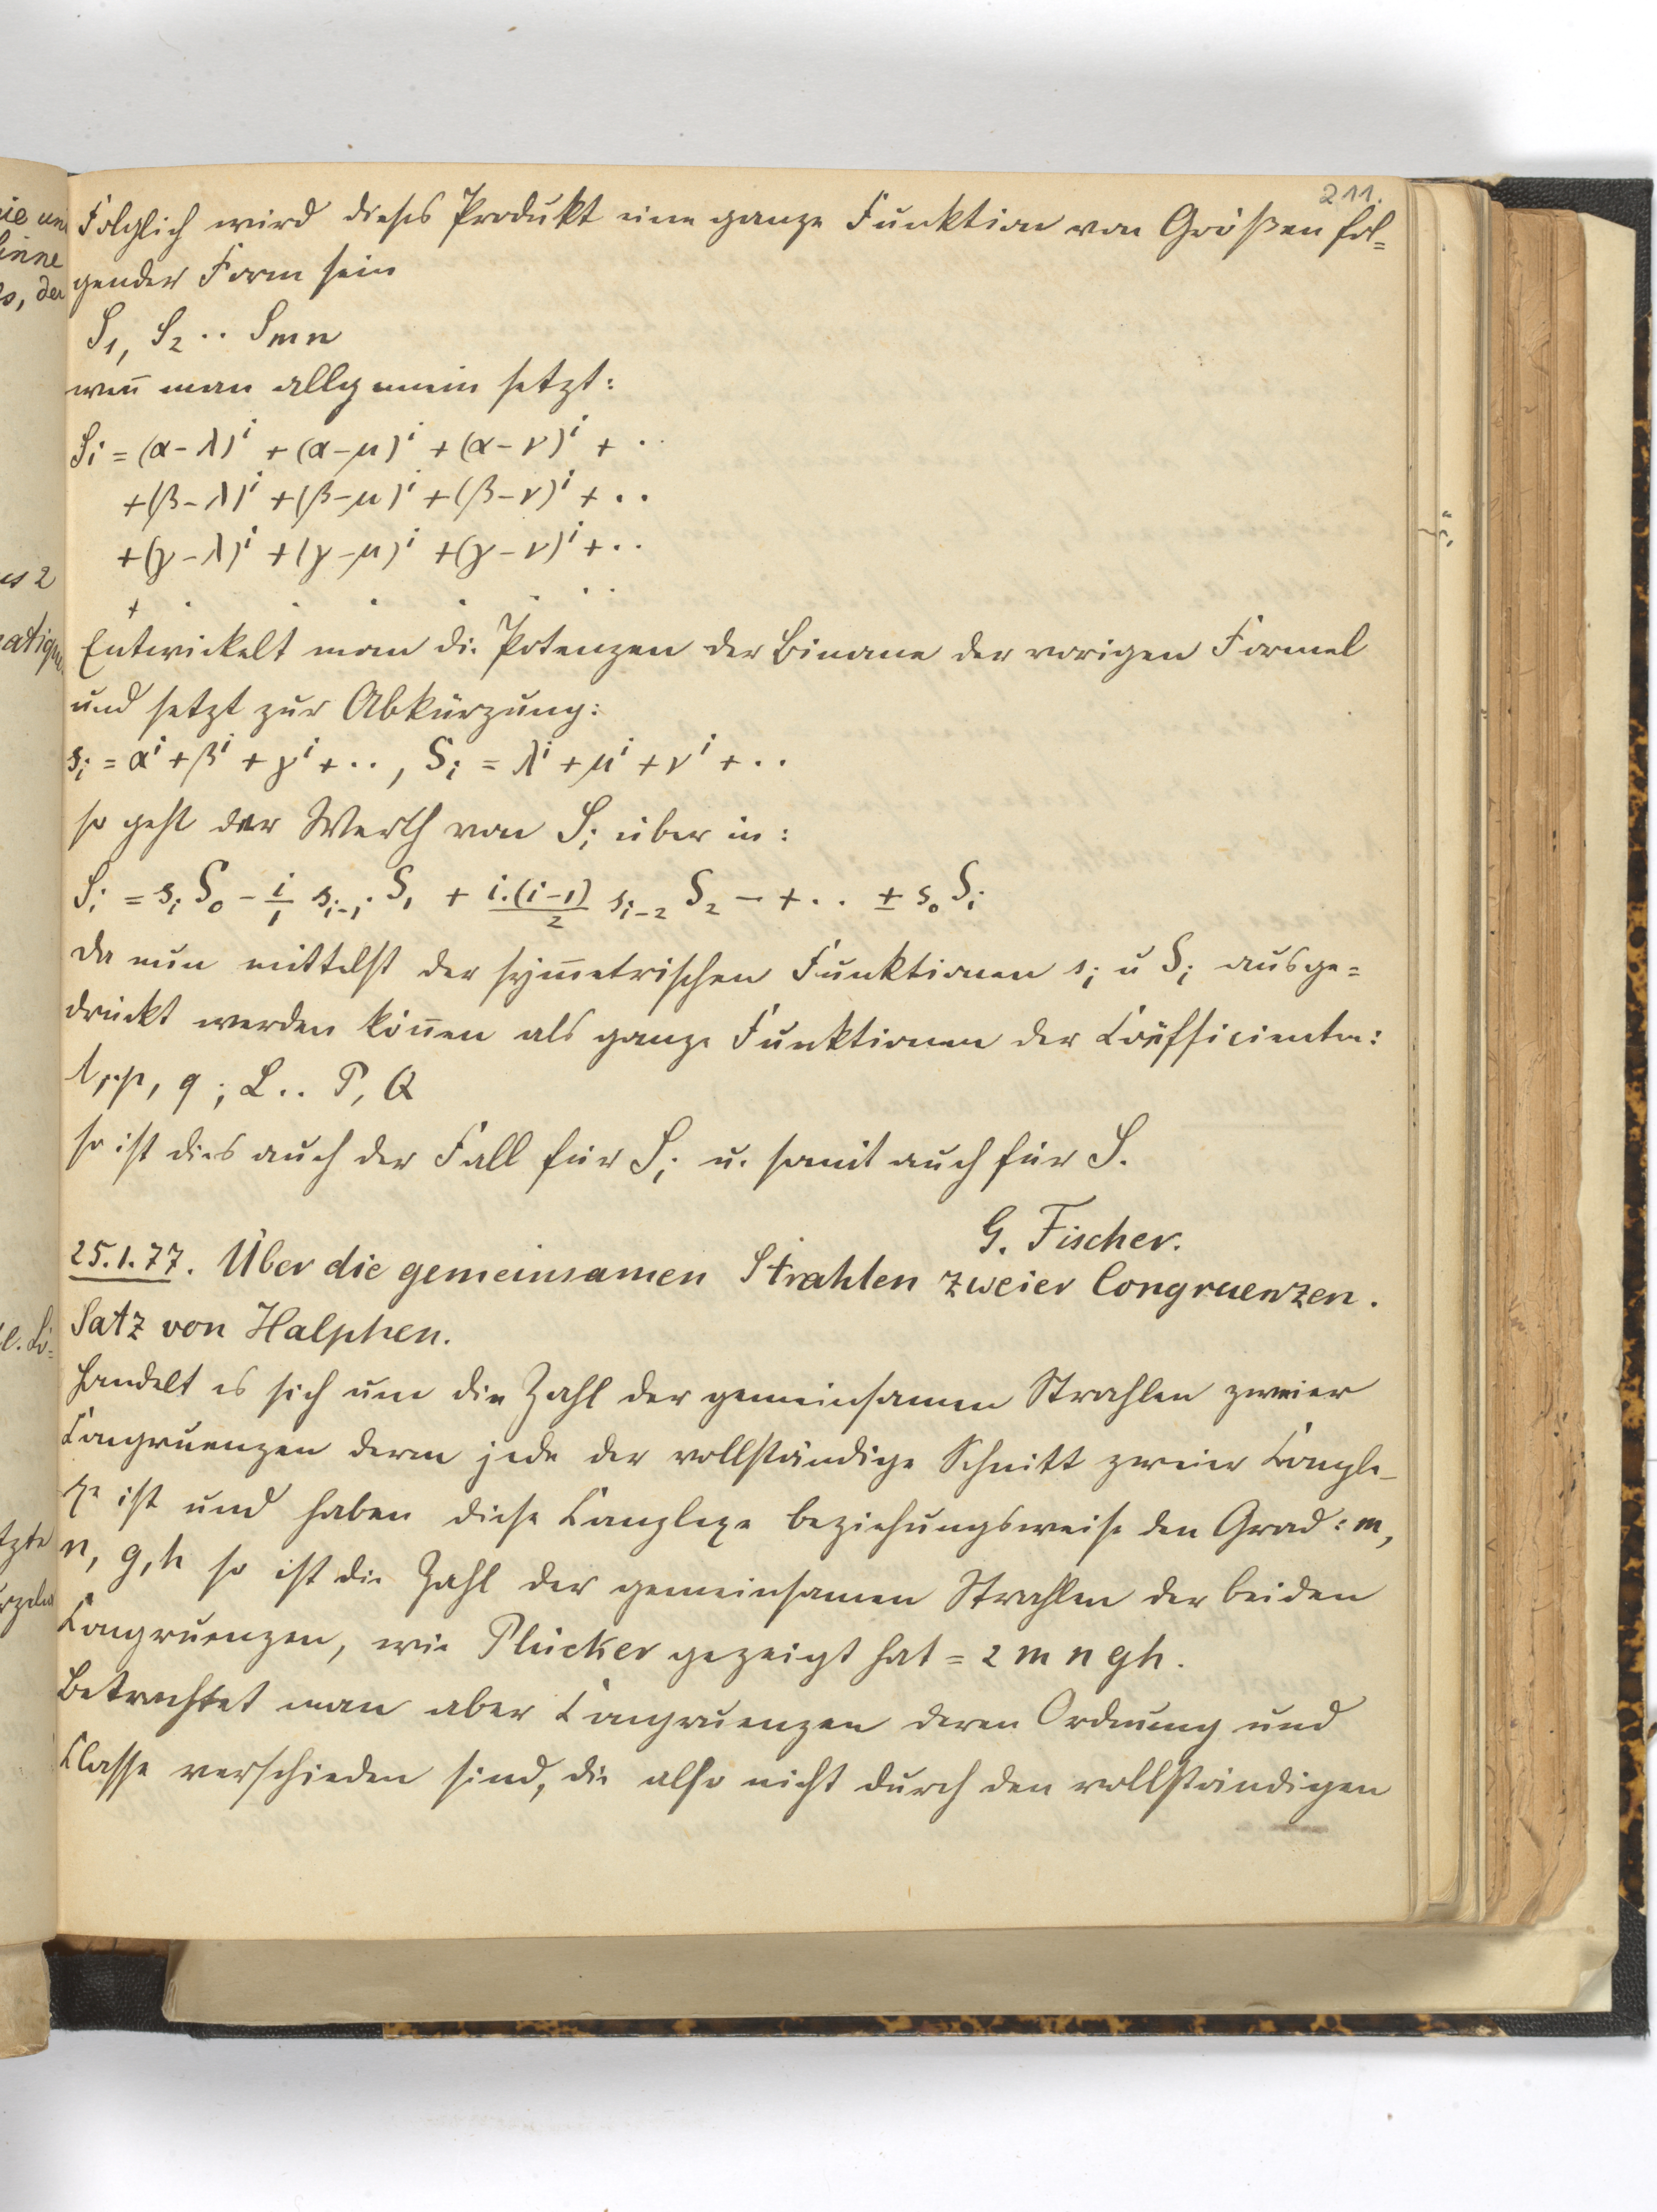 211.
Folglich wird dieses Produkt eine ganze Funktion von Größen fol=
gender Form sein
S₁, S₂ ·· Smn
weñ man allgemein setzt:
Si = (α-λ)ⁱ + (α-μ)ⁱ + (α-ν)ⁱ + ··
+(β-λ)ⁱ + (β-μ)ⁱ + (β-ν)ⁱ + ··
+(γ-λ)ⁱ + (γ-μ)ⁱ + (γ-ν)ⁱ + ··
+ · · · · · ·
Entwickelt man die Potenzen der Binome der vorigen Formel
und setzt zur Abkürzung:
sᵢ = αⁱ + βⁱ + γⁱ + ··, Sᵢ = λⁱ + μⁱ + νⁱ + ··
so geht der Werth von Sᵢ über in:
Sᵢ = sᵢ S₀ - i/1 sᵢ₋₁ · S₁ + i.(i-1)/2 sᵢ₋₂ S₂ - + ·· ± s₀ Sᵢ
da nun mittelst der sym̄etrischen Funktionen sᵢ u Sᵢ ausge=
drückt werden köñen als ganze Funktionen der Coëfficienten:
l,··p, q ; L ·· P, Q
so ist dies auch der Fall für Sᵢ u. somit auch für S.
G. Fischer.
25.1.77. Über die gemeinsamen Strahlen zweier Congruenzen.
Satz von Halphen.
Handelt es sich um die Zahl der gemeinsamen Strahlen zweier
Congruenzen deren jede der vollständige Schnitt zweier Comple-
xe ist und haben diese Complexe beziehungsweise den Grad: m,
n, g, h so ist die Zahl der gemeinsamen Strahlen der beiden
Congruenzen, wie Plücker gezeigt hat = 2 m n g h.
Betrachtet man aber Congruenzen deren Ordnung und
Classe verschieden sind, die also nicht durch den vollständigen